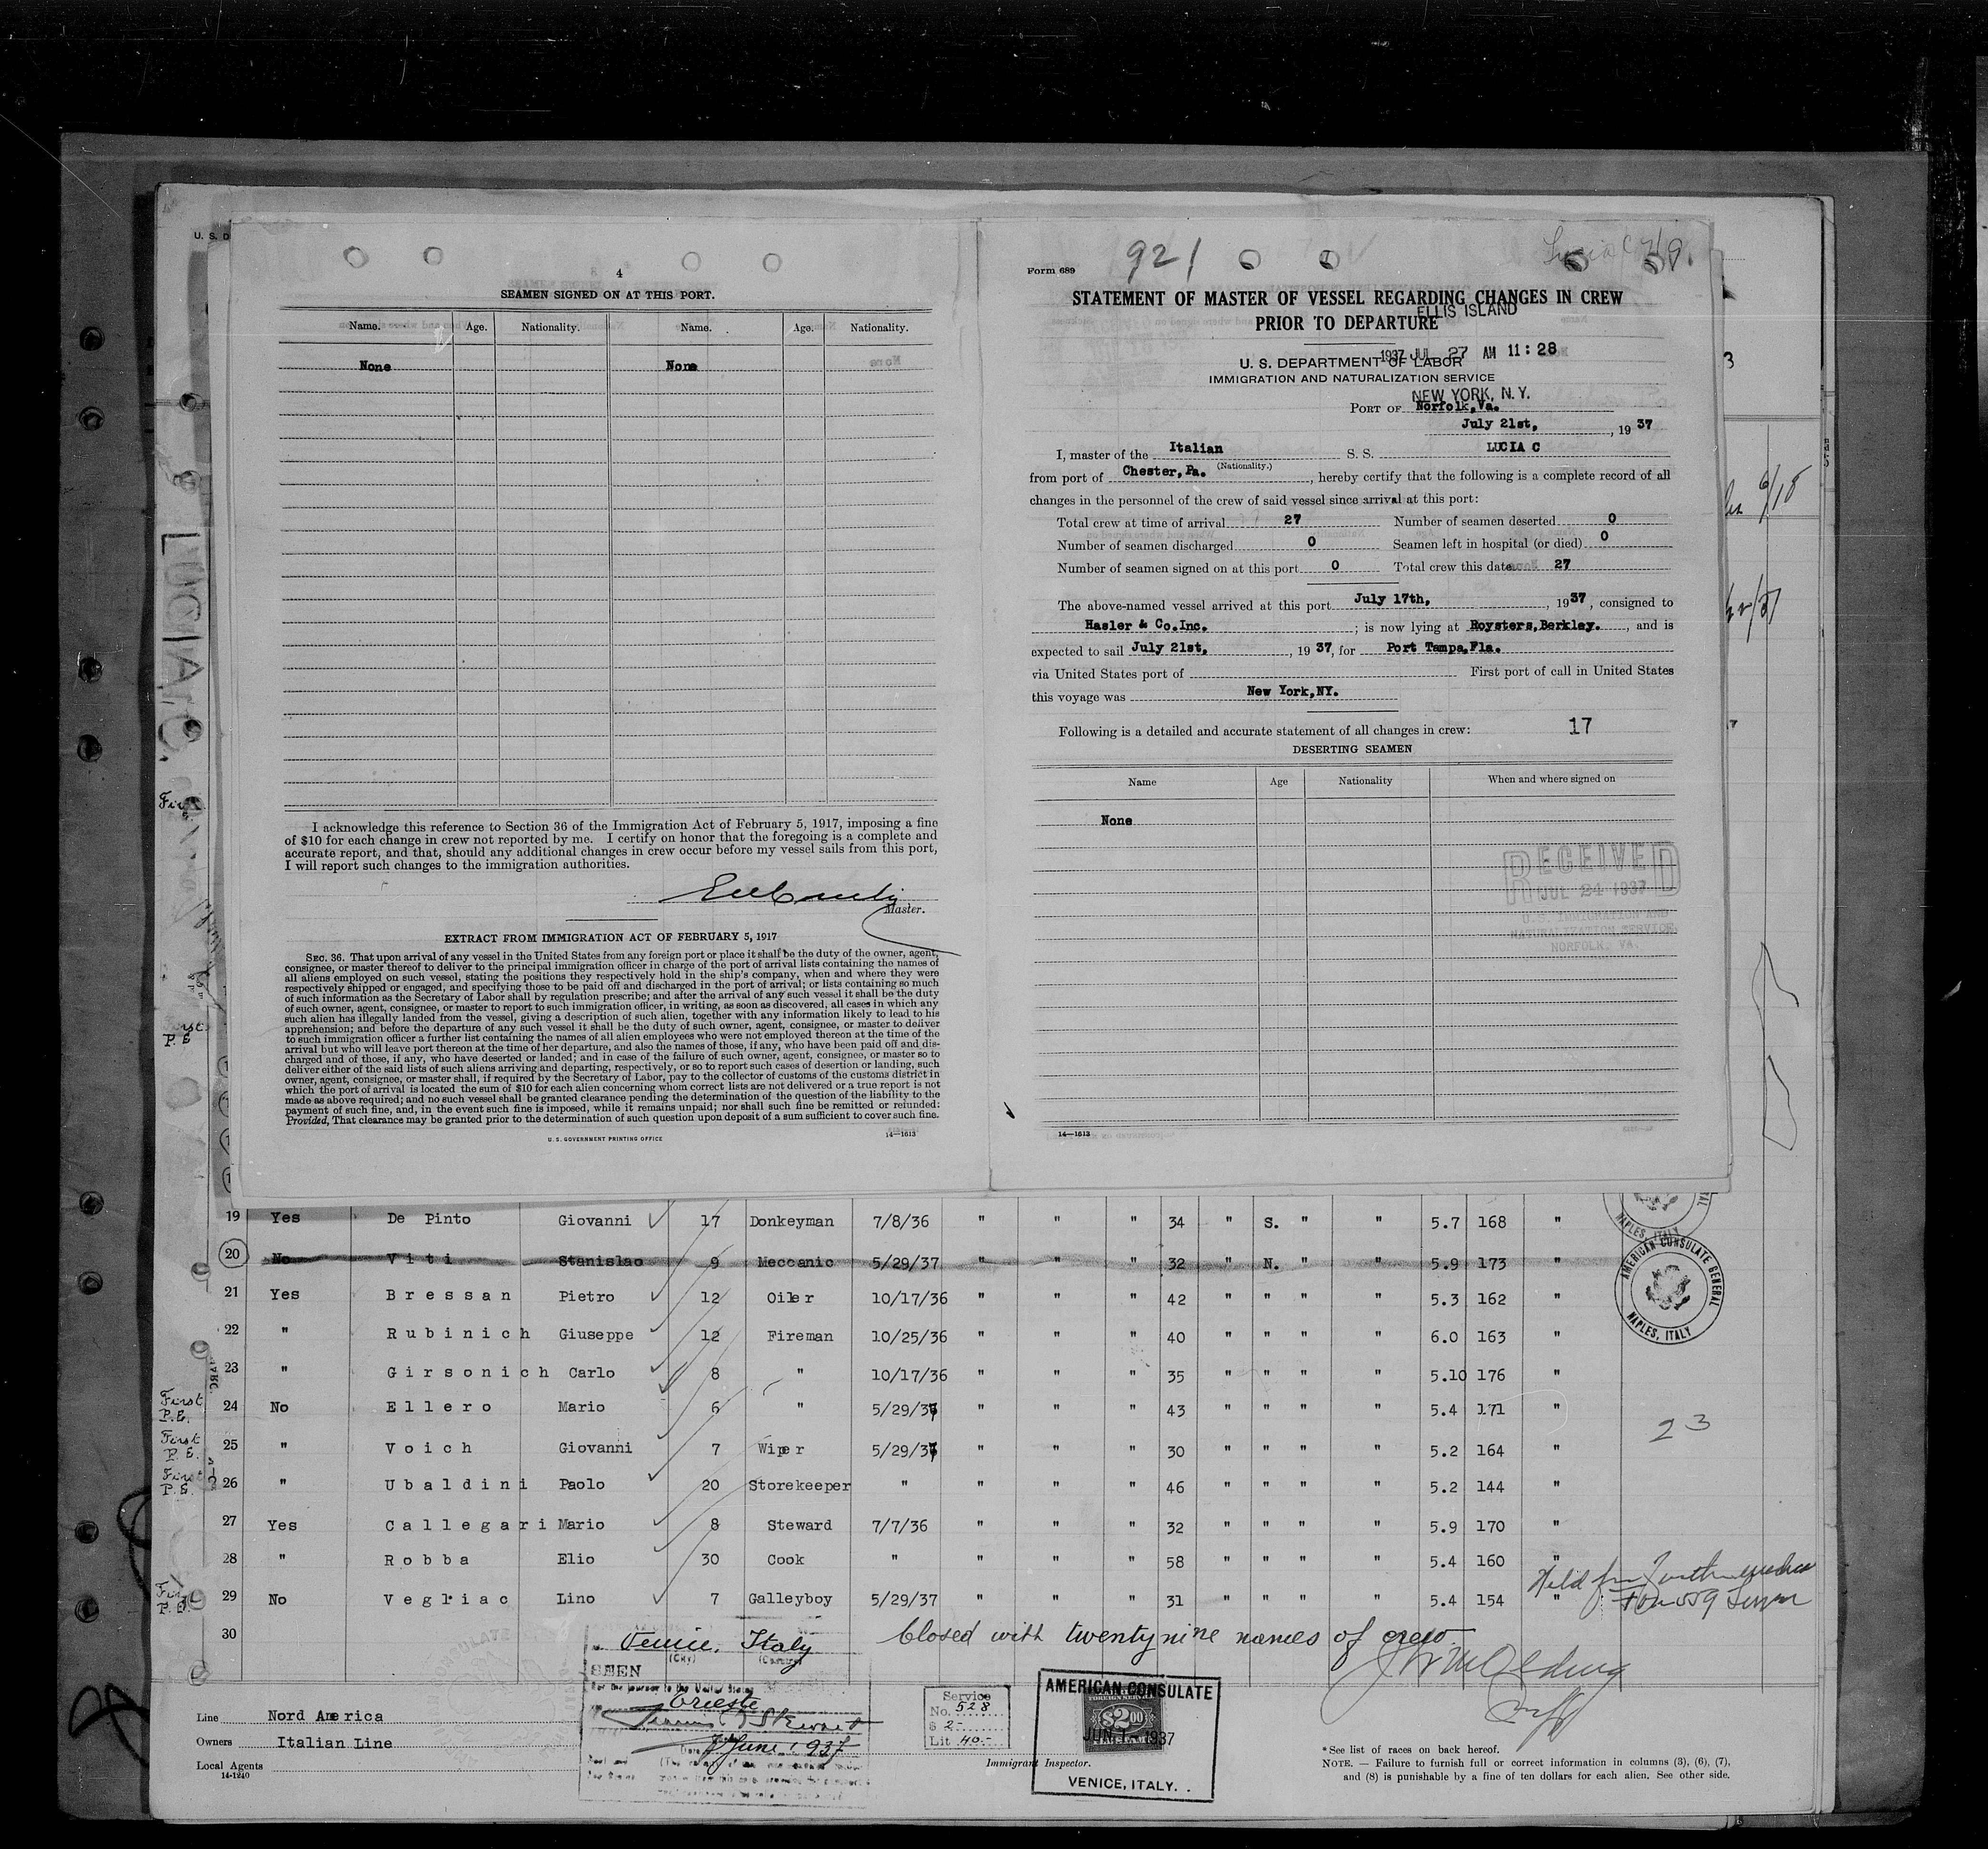 U. S. D
4
SEAMEN SIGNED ON AT THIS PORT.
Name. Age. Nationality. Name. Age. Nationality.
None None
I acknowledge this reference to Section 36 of the Immigration Act of February 5, 1917, imposing a fine
of $10 for each change in crew not reported by me. I certify on honor that the foregoing is a complete and
accurate report, and that, should any additional changes in crew occur before my vessel sails from this port,
I will report such changes to the immigration authorities.
Master.
EXTRACT FROM IMMIGRATION ACT OF FEBRUARY 5, 1917
SEC. 36. That upon arrival of any vessel in the United States from any foreign port or place it shall be the duty of the owner, agent,
consignee, or master thereof to deliver to the principal immigration officer in charge of the port of arrival lists containing the names of
all aliens employed on such vessel, stating the positions they respectively hold in the ship's company, when and where they were
respectively shipped or engaged, and specifying those to be paid off and discharged in the port of arrival; or lists containing so much
of such information as the Secretary of Labor shall by regulation prescribe; and after the arrival of any such vessel it shall be the duty
of such owner, agent, consignee, or master to report to such immigration officer, in writing, as soon as discovered, all cases in which any
such alien has illegally landed from the vessel, giving a description of such alien, together with any information likely to lead to his
apprehension; and before the departure of any such vessel it shall be the duty of such owner, agent, consignee, or master to deliver
to such immigration officer a further list containing the names of all alien employees who were not employed thereon at the time of the
arrival but who will leave port thereon at the time of her departure, and also the names of those, if any, who have been paid off and dis-
charged and of those, if any, who have deserted or landed; and in case of the failure of such owner, agent, consignee, or master so to
deliver either of the said lists of such aliens arriving and departing, respectively, or so to report such cases of desertion or landing, such
owner, agent, consignee, or master shall, if required by the Secretary of Labor, pay to the collector of customs of the customs district in
which the port of arrival is located the sum of $10 for each alien concerning whom correct lists are not delivered or a true report is not
made as above required; and no such vessel shall be granted clearance pending the determination of the question of the liability to the
payment of such fine, and, in the event such fine is imposed, while it remains unpaid; nor shall such fine be remitted or refunded:
Provided, That clearance may be granted prior to the determination of such question upon deposit of a sum sufficient to cover such fine.
U. S. GOVERNMENT PRINTING OFFICE 14—1613
921
Lucia C
Form 689
STATEMENT OF MASTER OF VESSEL REGARDING CHANGES IN CREW
PRIOR TO DEPARTURE
ELLIS ISLAND
1937 JUL 27 AM 11:28
U. S. DEPARTMENT OF LABOR
IMMIGRATION AND NATURALIZATION SERVICE
NEW YORK, N. Y.
PORT OF Norfolk,Va.
July 21st, , 19 37
I, master of the Italian S. S. LUCIA C
(Nationality.)
from port of Chester,Pa. , hereby certify that the following is a complete record of all
changes in the personnel of the crew of said vessel since arrival at this port:
Total crew at time of arrival 27 Number of seamen deserted 0
Number of seamen discharged 0 Seamen left in hospital (or died) 0
Number of seamen signed on at this port 0 Total crew this date 27
The above-named vessel arrived at this port July 17th, , 1937, consigned to
Hasler & Co.Inc. ; is now lying at Roysters,Berkley. , and is
expected to sail July 21st, , 19 37, for Port Tampa,Fla.
via United States port of First port of call in United States
this voyage was New York,NY.
Following is a detailed and accurate statement of all changes in crew: 17
DESERTING SEAMEN
Name Age Nationality When and where signed on
None
RECEIVED
JUL 24 1937
U. S. IMMIGRATION AND
NATURALIZATION SERVICE
NORFOLK, VA.
14—1613
LUCIA C.
19 Yes De Pinto Giovanni 17 Donkeyman 7/8/36 " " " 34 " S. " " 5.7 168 "
20 No Viti Stanislao 9 Meccanic 5/29/37 " " " 32 " N. " " 5.9 173 "
21 Yes Bressan Pietro 12 Oiler 10/17/36 " " " 42 " " " " 5.3 162 "
22 " Rubinich Giuseppe 12 Fireman 10/25/36 " " " 40 " " " " 6.0 163 "
23 " Girsonich Carlo 8 " 10/17/36 " " " 35 " " " " 5.10 176 "
First P.E. 24 No Ellero Mario 6 " 5/29/37 " " " 43 " " " " 5.4 171 "
First P.E. 25 " Voich Giovanni 7 Wiper 5/29/37 " " " 30 " " " " 5.2 164 "
First P.E. 26 " Ubaldini Paolo 20 Storekeeper " " " " 46 " " " " 5.2 144 "
27 Yes Callegari Mario 8 Steward 7/7/36 " " " 32 " " " " 5.9 170 "
28 " Robba Elio 30 Cook " " " " 58 " " " " 5.4 160 "
First P.E. 29 No Vegliac Lino 7 Galleyboy 5/29/37 " " " 31 " " " " 5.4 154 "
30
23
AMERICAN CONSULATE GENERAL
NAPLES, ITALY
NAPLES, ITALY
Held for
Closed with twentynine names of crew
Venice, Italy
(City) (Country)
SEEN
For the journey to the United States
Trieste
7 June 1937
Service
No. 528
$ 2-
Lit 40.-
AMERICAN CONSULATE
FOREIGN SERVICE
$2.00
JUN 7 1937
VENICE, ITALY.
Immigrant Inspector.
Line Nord America
Owners Italian Line
Local Agents
14-1240
*See list of races on back hereof.
NOTE. — Failure to furnish full or correct information in columns (3), (6), (7),
and (8) is punishable by a fine of ten dollars for each alien. See other side.